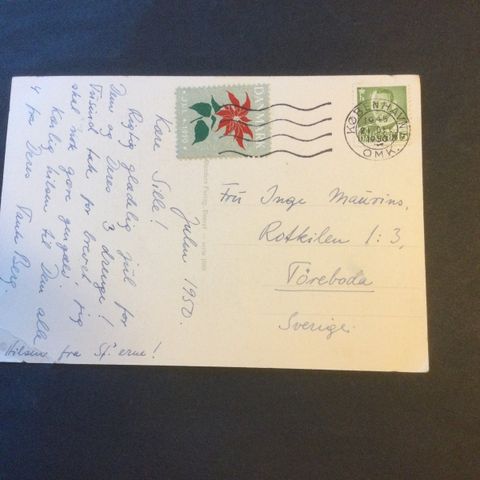 Julen 1950.
Kære Sille!
Rigtig glædelig jul for
Dem og Deres 3 drenge!
Tusind tak for brevet, jeg
skal nok gøre gengæld.
Kærlig hilsen til Dem alle
4 fra Deres Tante Berg.
Hilsen fra
DANMARK
KØBENHAVN
OMK.
Fru Inge Maurins,
Rotkilen 1:3,
Töreboda
Sverige.